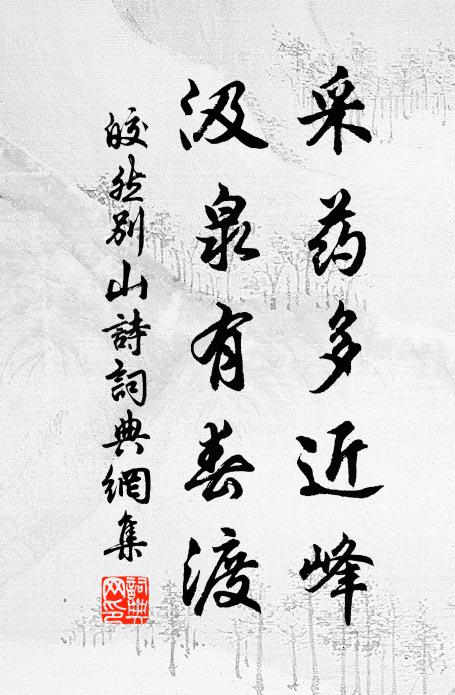 采药多近峰
汲泉有春渡
皎然别山詩詞典網集